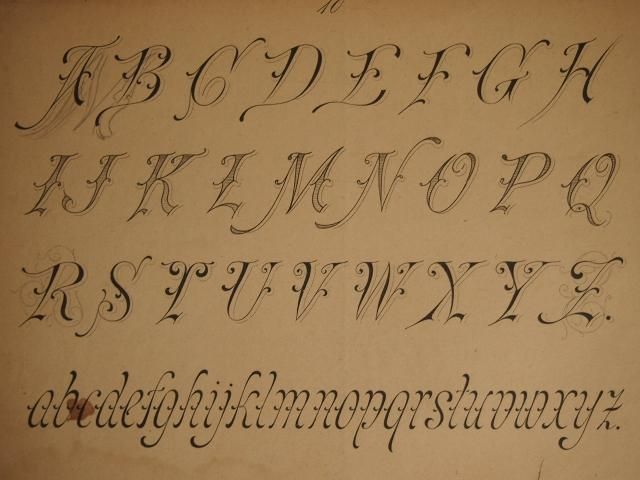 10
A B C D E F G H
I J K L M N O P Q
R S T U V W X Y Z.
abcdefghijklmnopqrstuvwxyz.